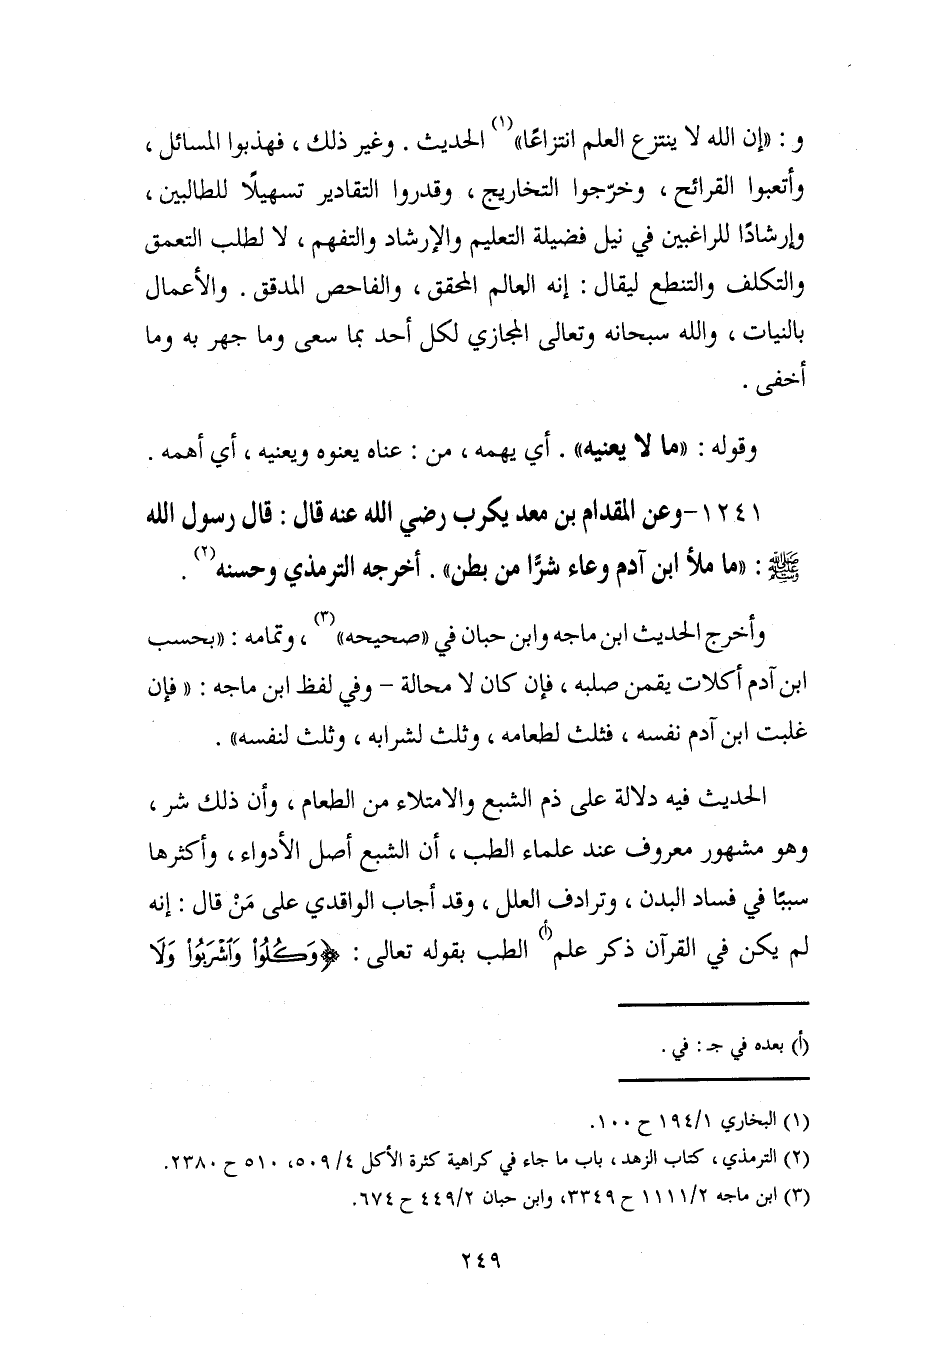 و : «إن الله لا ينتزع العلم انتزاعًا»(١) الحديث . وغير ذلك ، فهذبوا المسائل ،
وأتعبوا القرائح ، وخرّجوا التخاريج ، وقدروا التقادير تسهيلًا للطالبين ،
وإرشادًا للراغبين في نيل فضيلة التعليم والإرشاد والتفهم ، لا لطلب التعمق
والتكلف والتنطع ليقال : إنه العالم المحقق ، والفاحص المدقق . والأعمال
بالنيات ، والله سبحانه وتعالى المجازي لكل أحد بما سعى وما جهر به وما
أخفى .
وقوله : «ما لا يعنيه» . أي يهمه ، من : عناه يعنوه ويعنيه ، أي أهمه .
١٢٤١-وعن المقدام بن معد يكرب رضي الله عنه قال : قال رسول الله
ﷺ : «ما ملأ ابن آدم وعاء شرًّا من بطن» . أخرجه الترمذي وحسنه(٢) .
وأخرج الحديث ابن ماجه وابن حبان في «صحيحه»(٣) ، وتمامه : «بحسب
ابن آدم أكلات يقمن صلبه ، فإن كان لا محالة – وفي لفظ ابن ماجه : « فإن
غلبت ابن آدم نفسه ، فثلث لطعامه ، وثلث لشرابه ، وثلث لنفسه» .
الحديث فيه دلالة على ذم الشبع والامتلاء من الطعام ، وأن ذلك شر ،
وهو مشهور معروف عند علماء الطب ، أن الشبع أصل الأدواء ، وأكثرها
سببًا في فساد البدن ، وترادف العلل ، وقد أجاب الواقدي على مَنْ قال : إنه
لم يكن في القرآن ذكر علم(أ) الطب بقوله تعالى : ﴿وَكُلُوا۟ وَٱشْرَبُوا۟ وَلَا
(أ) بعده في جـ : في .
(١) البخاري ١٩٤/١ ح ١٠٠.
(٢) الترمذي ، كتاب الزهد ، باب ما جاء في كراهية كثرة الأكل ٤/ ٥٠٩، ٥١٠ ح ٢٣٨٠.
(٣) ابن ماجه ١١١١/٢ ح ٣٣٤٩، وابن حبان ٤٤٩/٢ ح ٦٧٤.
٢٤٩